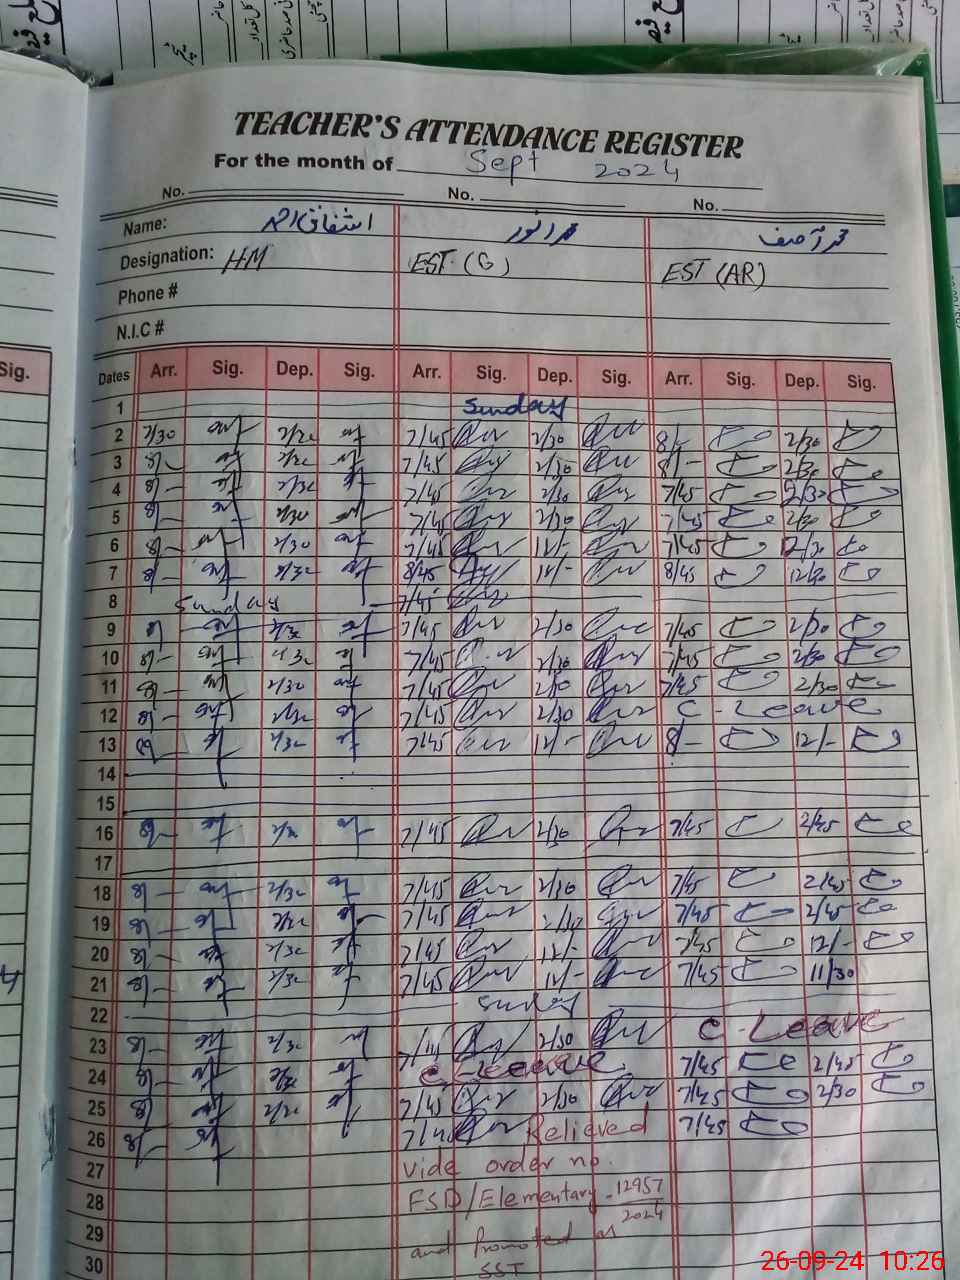 TEACHER'S ATTENDANCE REGISTER
For the month of Sept 2024
No. No. No.
Name: اشفاق احمد محمد انور محمد آصف
Designation: HM EST (G) EST (AR)
Phone #
N.I.C #
Sig. Dates Arr. Sig. Dep. Sig. Arr. Sig. Dep. Sig. Arr. Sig. Dep. Sig.
1 Sunday
2 7/30 2/30 7/45 2/30 8/- 2/30
3 8/- 2/30 7/45 2/30 8/- 2/30
4 8/- 2/30 7/45 2/30 7/45 2/30
5 8/- 2/30 7/45 2/30 7/45 2/30
6 8/- 2/30 7/45 12/- 7/45 12/30
7 8/- 2/30 8/45 12/- 8/45 12/30
8 Sunday 7/45
9 8/- 2/30 7/45 2/30 7/45 2/30
10 8/- 2/30 7/45 2/30 7/45 2/30
11 8/- 2/30 7/45 2/30 7/45 2/30
12 8/- 2/30 7/45 2/30 C - Leave
13 8/- 2/30 7/45 12/- 8/- 12/-
14
15
16 8/- 2/30 7/45 2/30 7/45 2/45
17
18 8/- 2/30 7/45 2/30 7/45 2/45
19 8/- 2/30 7/45 2/30 7/45 2/45
20 8/- 2/30 7/45 12/- 7/45 12/-
21 8/- 2/30 7/45 12/- 7/45 11/30
22 Sunday
23 8/- 2/30 7/45 2/30 C - Leave
24 8/- 2/30 C - Leave 7/45 2/45
25 8/- 2/30 7/45 2/30 7/45 2/30
26 8/- 7/45 Relieved 7/45
27 vide order no.
28 FSD/Elementary - 12957/2024
29 and Promoted as
30 SST
26-09-24 10:26